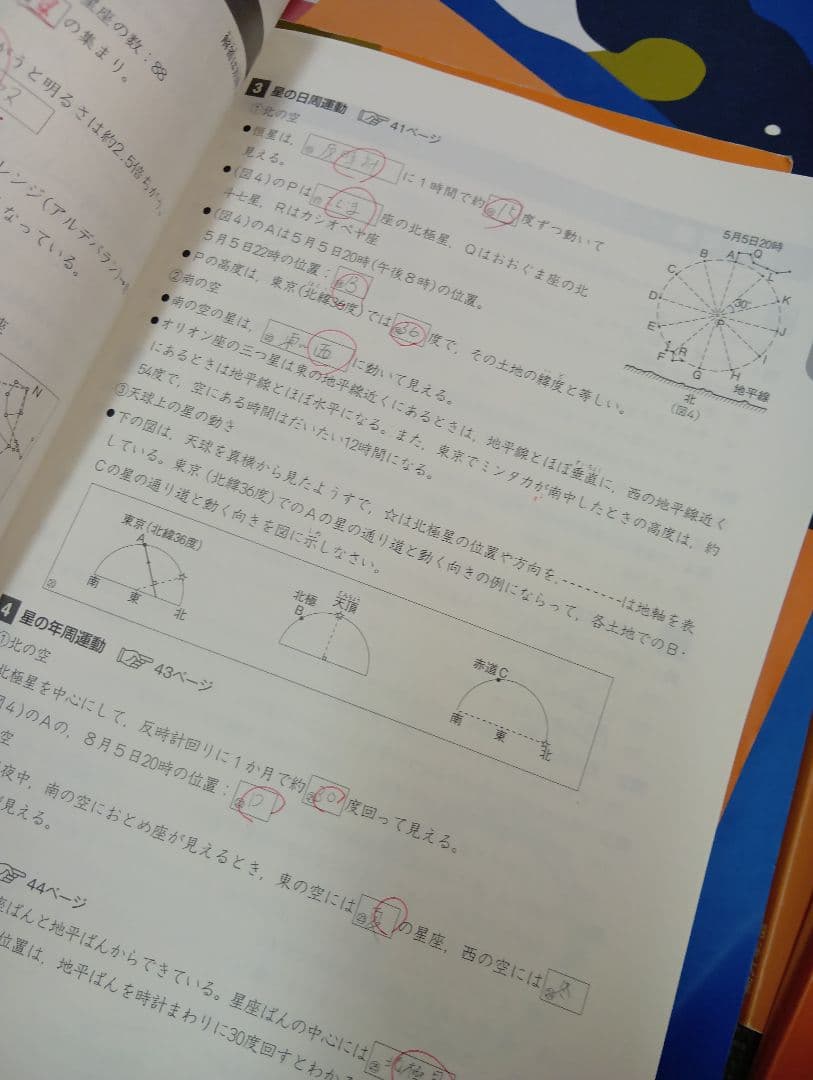 星座の数：88
の集まり。
うと明るさは約2.5倍ちがう。
レンジ(アルデバラン)→
なっている。
座
N
3 星の日周運動 41ページ
①北の空
●恒星は，反時計に1時間で約15度ずつ動いて
見える。
●(図4)のPはこぐま座の北極星，Qはおおぐま座の北
斗七星，Rはカシオペヤ座
●(図4)のAは5月5日20時(午後8時)の位置。
5月5日22時の位置：B
●Pの高度は，東京(北緯36度)では36度で，その土地の緯度と等しい。
②南の空
●南の空の星は，東→西に動いて見える。
●オリオン座の三つ星は東の地平線近くにあるときは，地平線とほぼ垂直に，西の地平線近く
にあるときは地平線とほぼ水平になる。また，東京でミンタカが南中したときの高度は，約
54度で，空にある時間はだいたい12時間になる。
③天球上の星の動き
●下の図は，天球を真横から見たようすで，☆は北極星の位置や方向を，--------は地軸を表
している。東京(北緯36度)でのAの星の通り道と動く向きの例にならって，各土地でのB・
Cの星の通り道と動く向きを図に示しなさい。
5月5日20時
A Q
B
L
C
K
D
30°
J
E
P
I
F R
G
H
地平線
北
(図4)
東京(北緯36度)
A
南 東 北
北極 天頂
B
赤道C
南 東 北
4 星の年周運動 43ページ
①北の空
北極星を中心にして，反時計回りに1か月で約30度回って見える。
図4)のAの，8月5日20時の位置：D
空
夜中，南の空におとめ座が見えるとき，東の空には夏の星座，西の空には冬
が見える。
44ページ
座ばんと地平ばんからできている。星座ばんの中心には北極星
位置は，地平ばんを時計まわりに30度回すとわかる